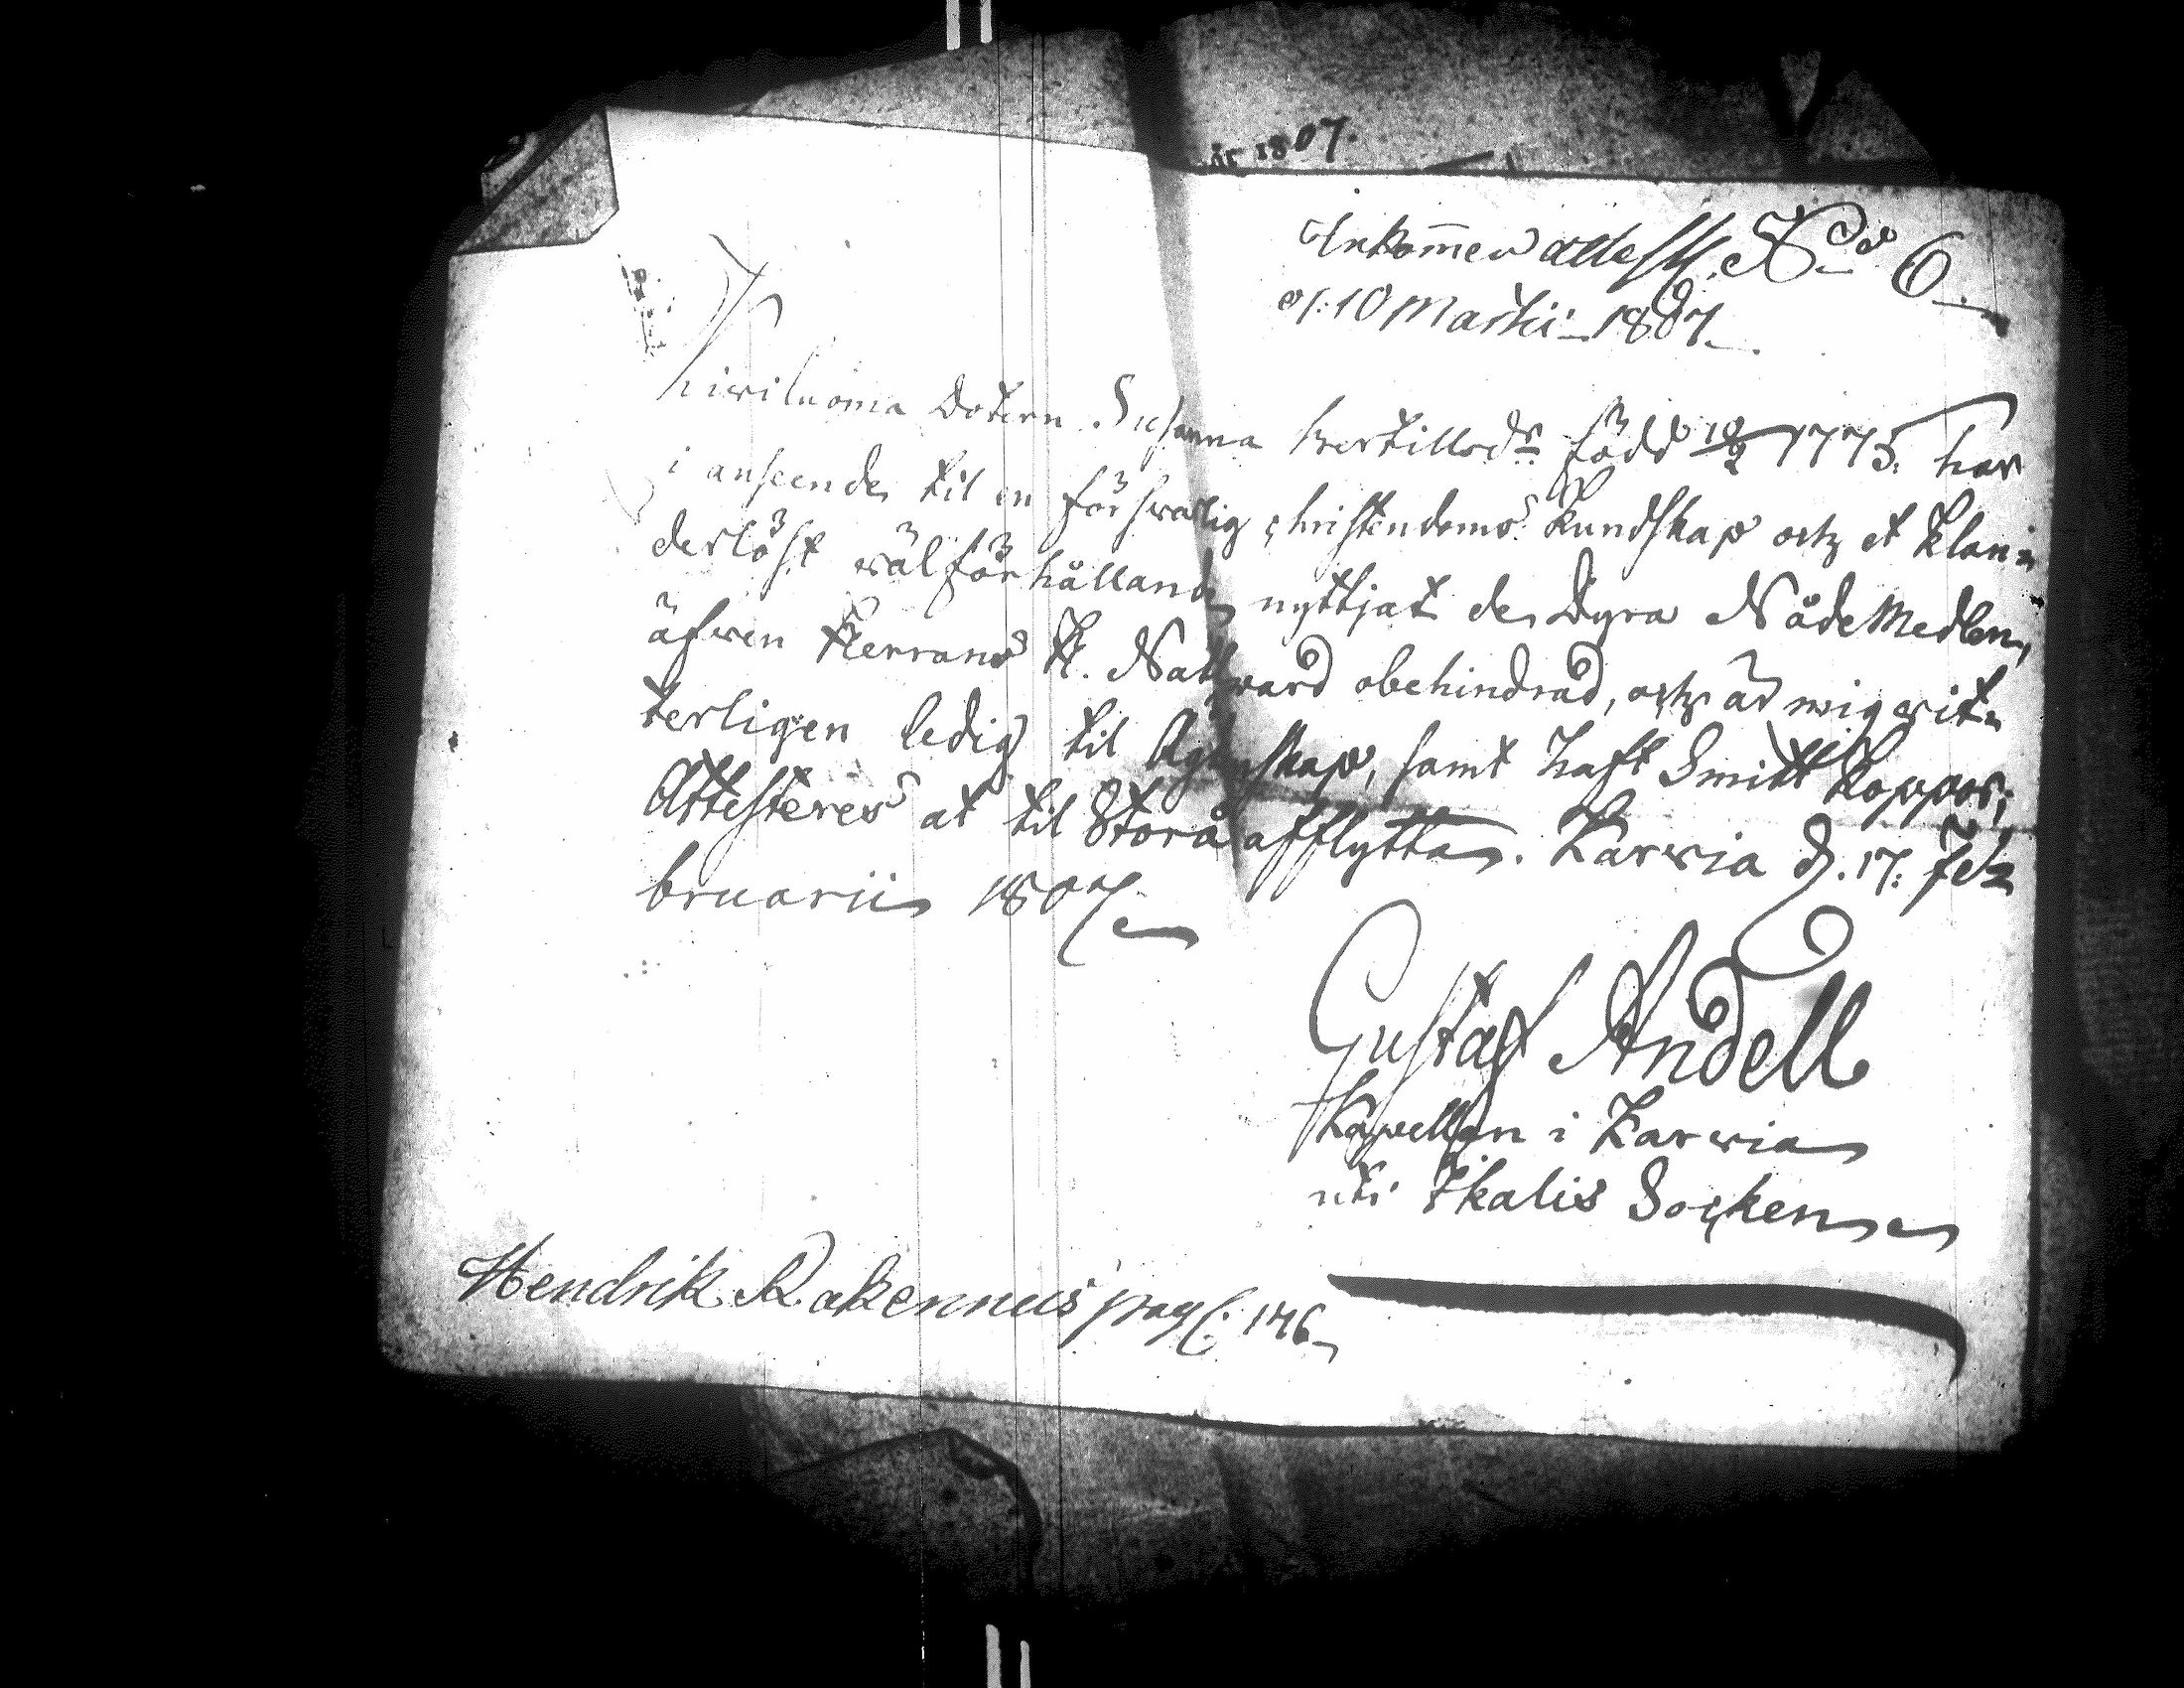 år 1807.
Inkom̅en attest. N:o 6.
d: 10 Martii 1807.
Kiwiluoma Dotern Susanna Bertillsdr född 10/2 1775. har
i anseende til en försvarlig christendoms Kundskap och et klan=
derlöst wälförhållande nyttjat de Dyra NådeMedlen,
äfwen Herrans H. Nattward obehindrad, och är mig wit=
terligen ledig til Ägtenskap, samt haft Smitt Koppor;
Attesteres at til Storå afflytta. Karvia d. 17: Feb
bruarii 1807.
Gustaf Andell
Kapellan i Karvia
uti Ikalis Socken
Hendrik Rakennus pag: 176